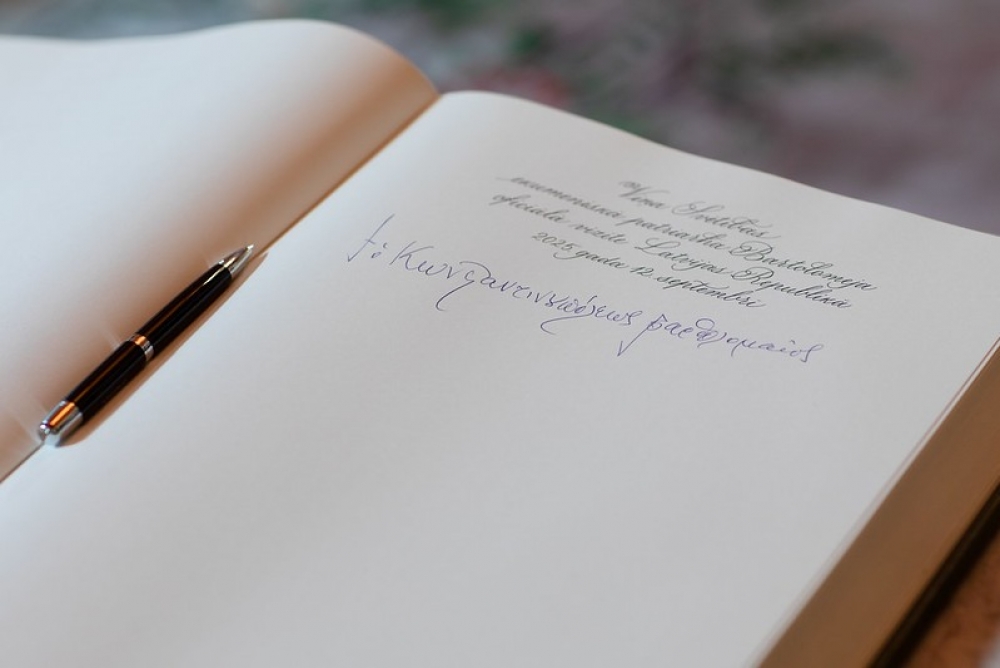 Viņa Svētības
ekumeniskā patriarha Bartolomeja
oficiālā vizīte Latvijas Republikā
2025. gada 12. septembrī
† ὁ Κωνσταντινουπόλεως Βαρθολομαῖος